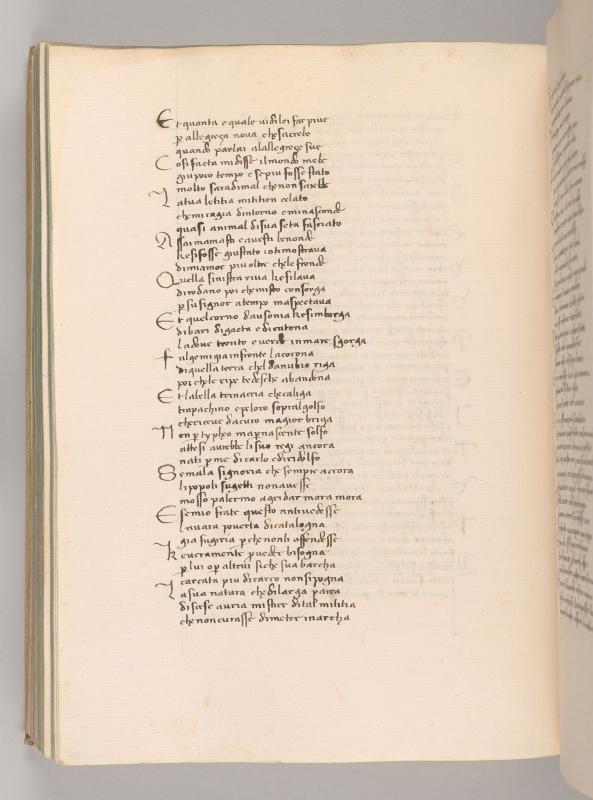 Et quanta e quale vidilei far piue
p allegreza nova che sacrebe
quando parlai alallegreze sue
Cosi facta midisse ilmondo mebe
giupoco tempo e sepiu fosse stato
molto saradimal che non sarebbe
Latua letitia mitiene celato
chemiragia dintorno eminasconde
quasi animal disua seta fasciato
Assai mamasti e avesti benonde
ke sifosse giustato iotimostrava
dimiamor piu oltre chele fronde
Quella sinistra riva ke silava
dirodano poi chemisto consorga
p su signor atempo maspectava
Et quelcorno dausonia ke simborga
dibari digaeta edicatona
ladove trento e verde inmare sgorga
Fulgemi gia infronte lacorona
diquella terra chel danubio riga
poi chele ripe tedesche abandona
Et labella trinacria checaliga
trapachino epeloro sopralgolfo
chericeve dacuro magior briga
Non p typheo ma pnascente solfo
attesi avrebbe lisuo regi ancora
nati p me dicarlo e diridolfo
Se mala signoria che sempre accora
lipopoli sugetti nonavesse
mosso palermo agridar mora mora
E semio frate questo antivedesse
lavara poverta dicatalogna
gia fugiria pche nonli offendesse
Ke veramente pveder bisogna
p lui op altrui siche sua barcha
carcata piu dicarco nonsipogna
La sua natura che dilarga parca
discese avria mistier dital militia
che noncurasse dimeter inarcha